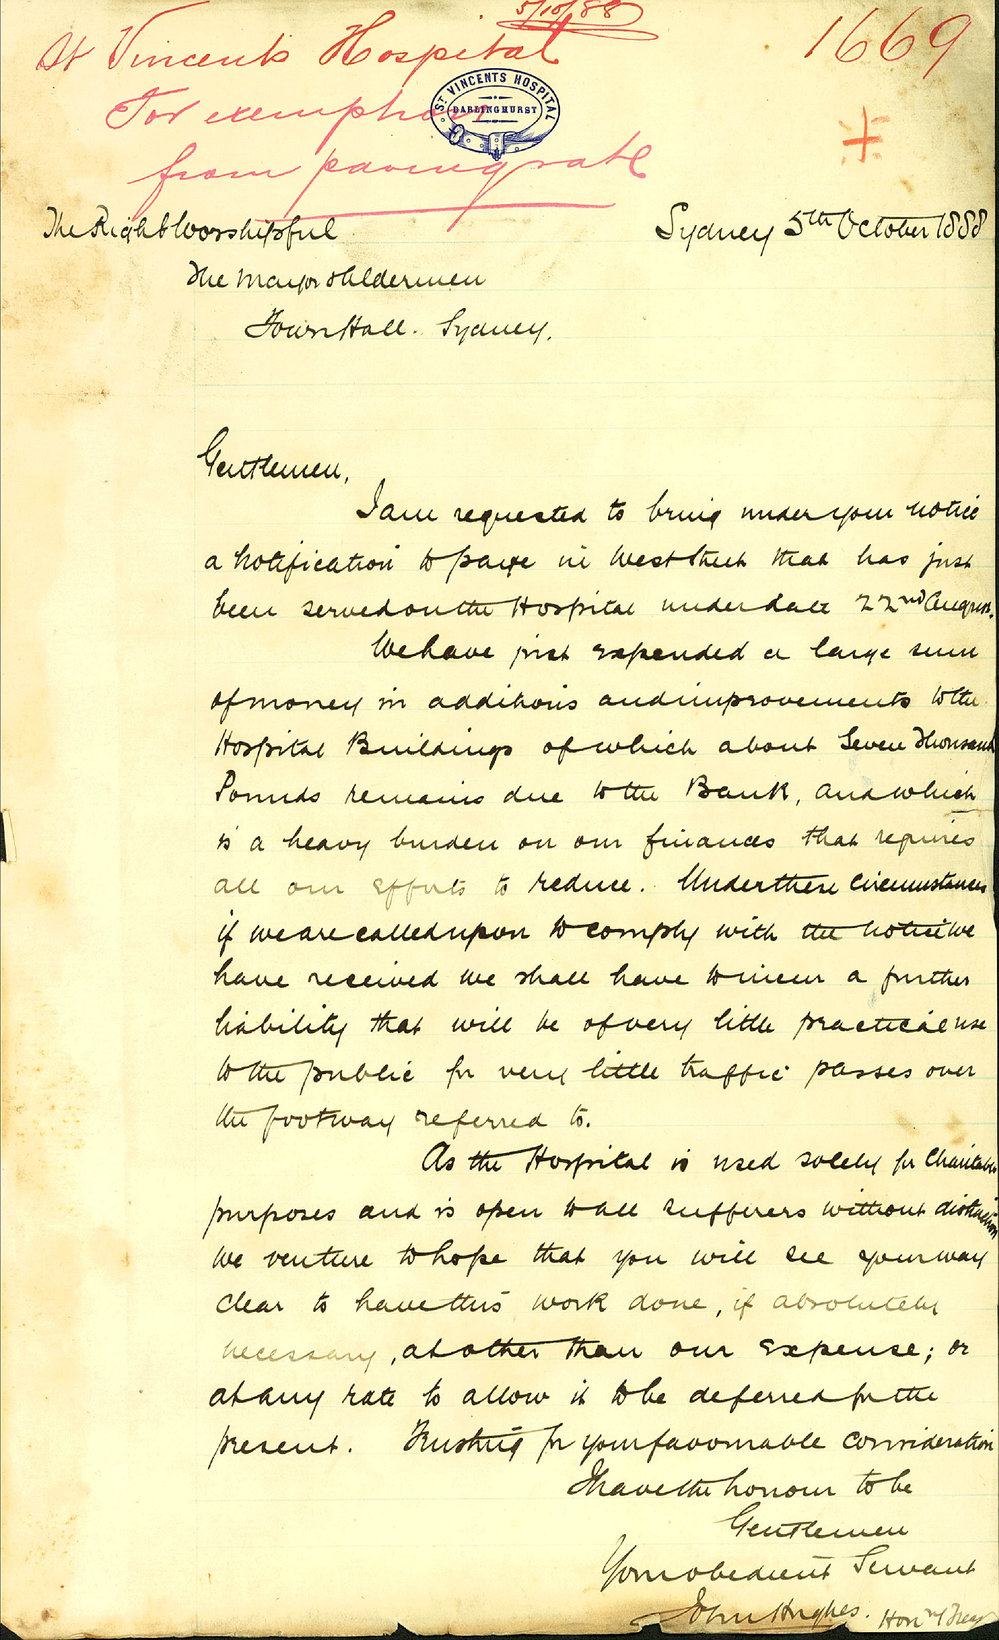 5/10/88
St Vincents Hospital
1669
For exemption
from paving rate
ST VINCENTS HOSPITAL
DARLINGHURST
The Right Worshipful
Sydney 5th October 1888
The Mayor & Aldermen
Town Hall. Sydney.
Gentlemen,
I am requested to bring under your notice
a notification to pave in West Street that has just
been served on the Hospital under date 22nd August.
We have just expended a large sum
of money in additions and improvements to the
Hospital Buildings of which about Seven Thousand
Pounds remains due to the Bank, and which
is a heavy burden on our finances that requires
all our efforts to reduce. Under these circumstances
if we are called upon to comply with the notice we
have received we shall have to incur a further
liability that will be of very little practical use
to the public for very little traffic passes over
the footway referred to.
As the Hospital is used solely for Charitable
purposes and is open to all sufferers without distinction
We venture to hope that you will see your way
clear to have this work done, if absolutely
necessary, at other than our expense; or
at any rate to allow it to be deferred for the
present. Trusting for your favourable consideration
I have the honour to be
Gentlemen
Your obedient Servant
John Hughes. Honry Trey